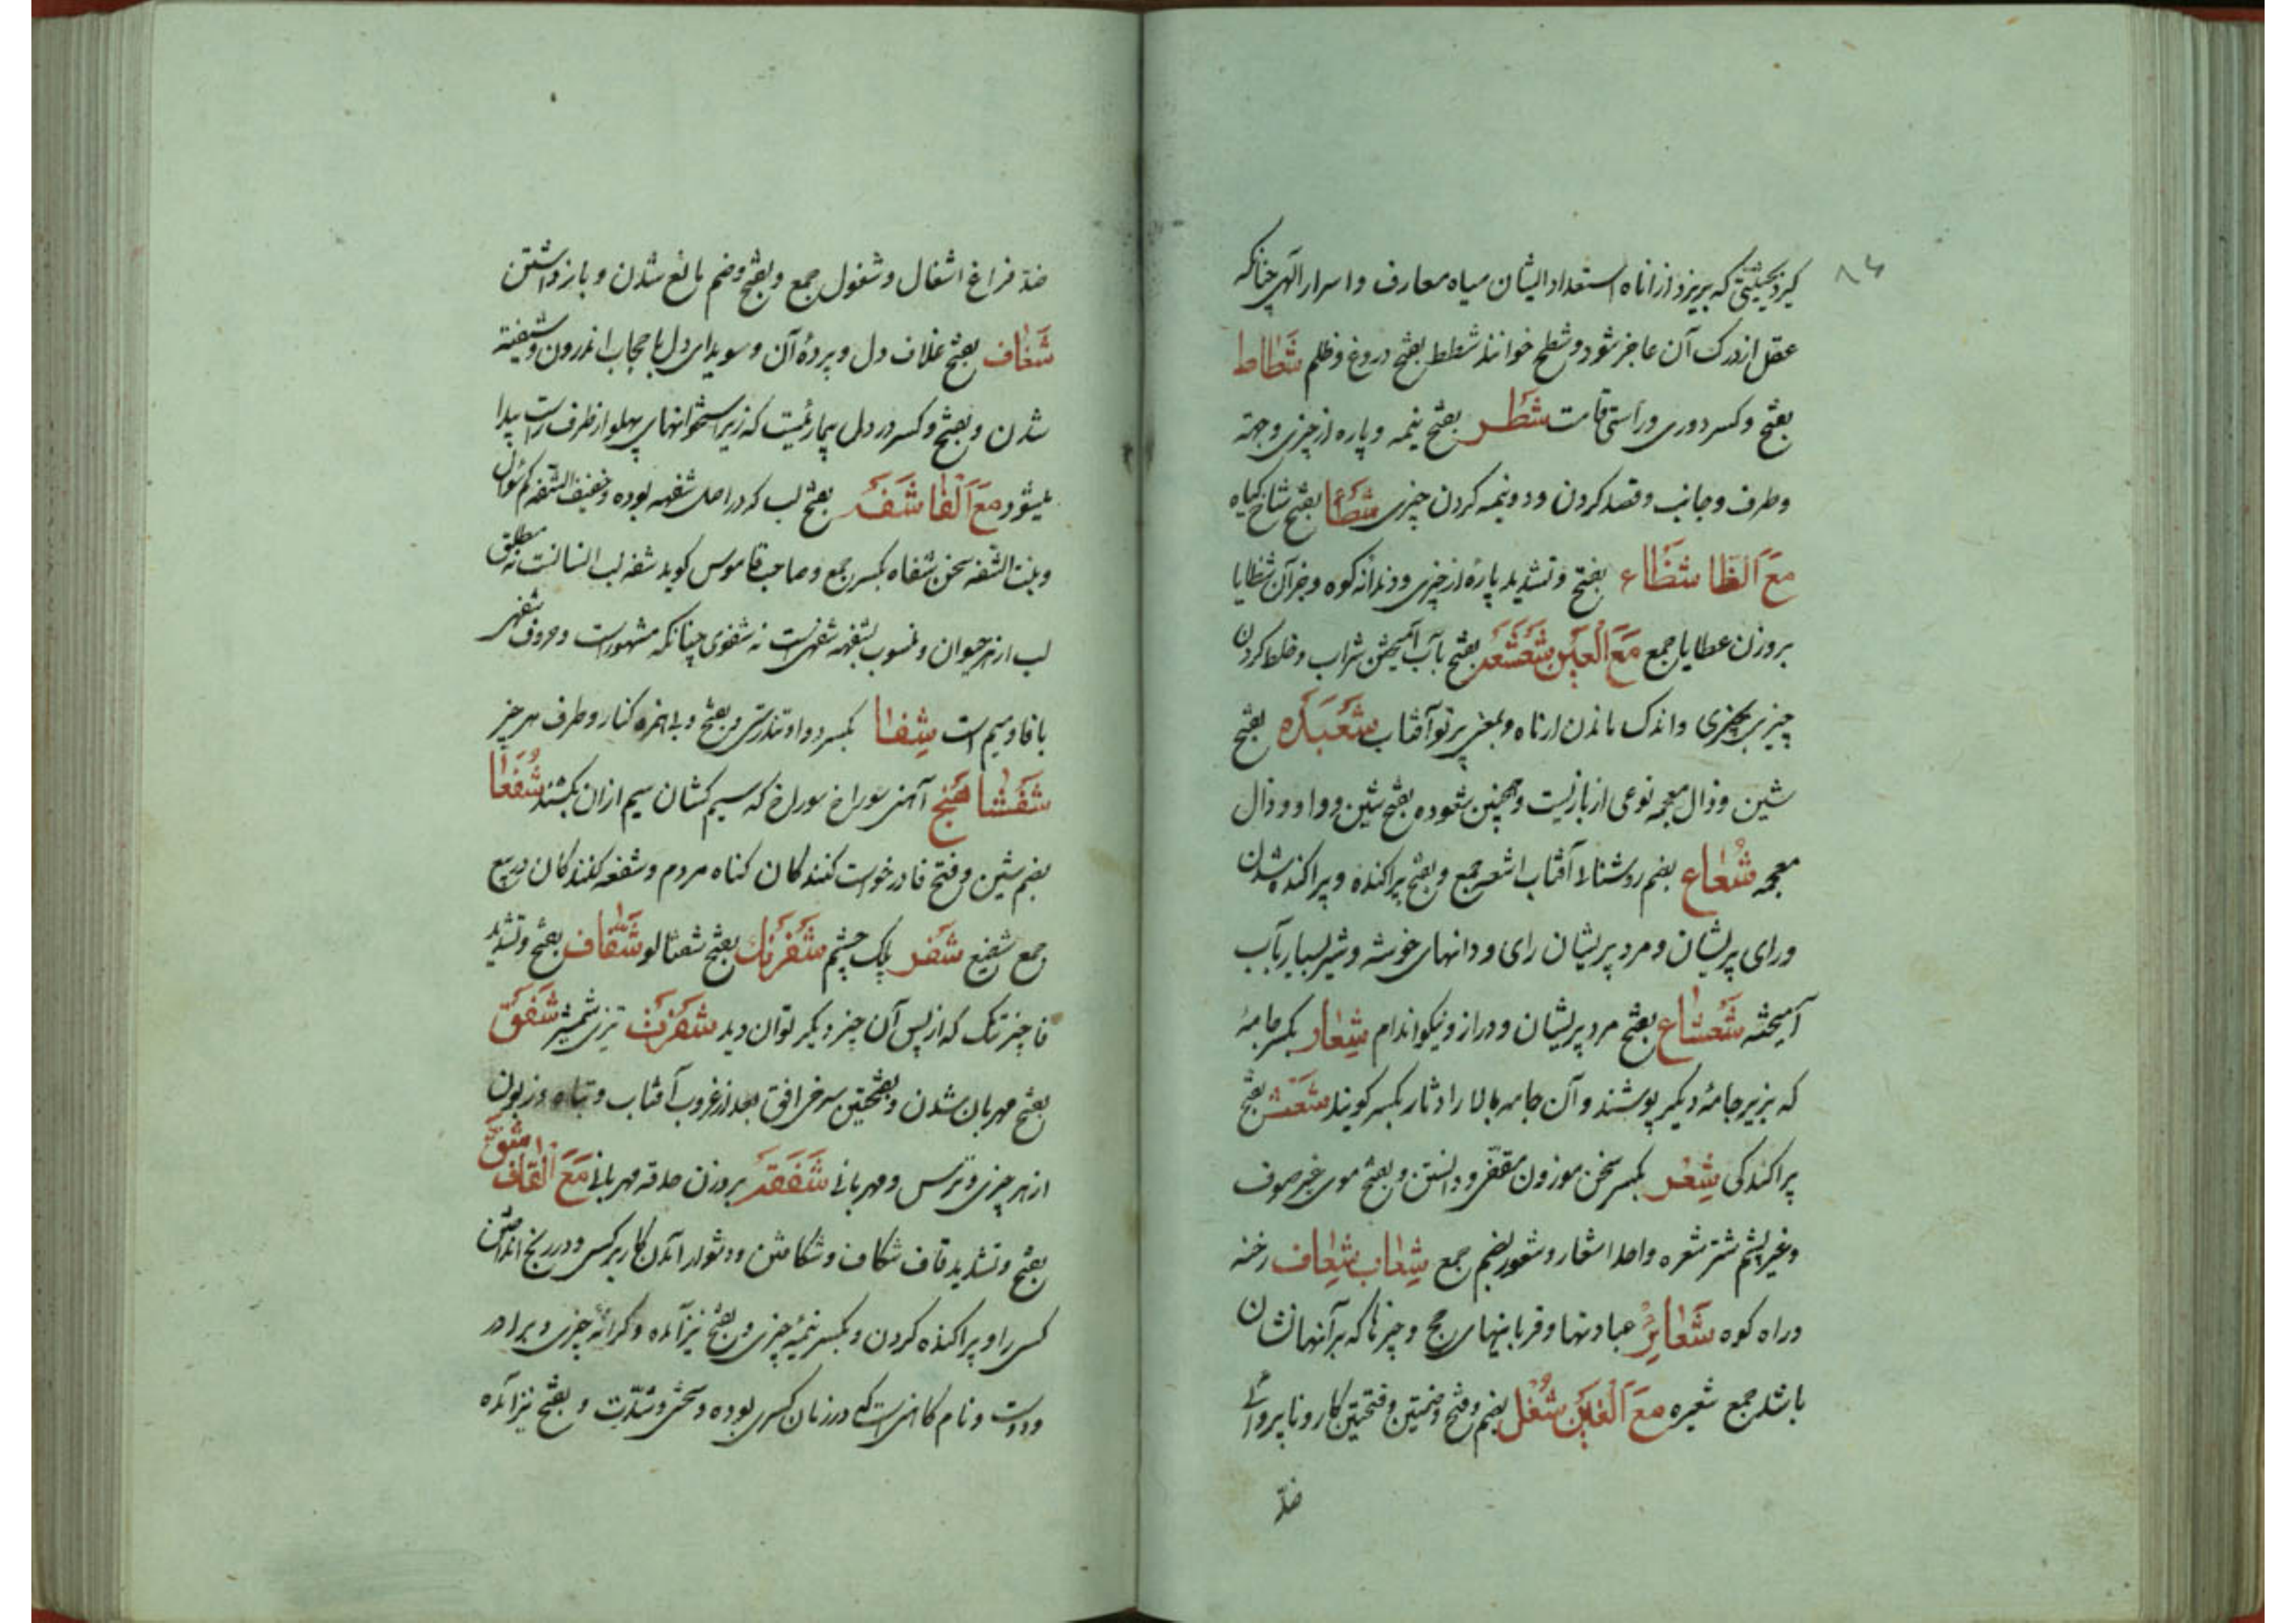 ۸۴
کیرد بحیثیتی که بریزد از اناه استعداد ایشان میاه معارف و اسرار الهی چنانکه
عقل از درک آن عاجز شود و شطح خوانند شطط بفتح دروغ و ظلم شَطاط
بفتح و کسر دوری و راستی قامت شَطر بفتح نیمه و پاره از چیزی و جهة
و طرف و جانب و قصد کردن و دو نیمه کردن چیزی شَطَا بفتح شاخ کیاه
مَعَ الظَا شَظَاء بفتح و تشدید پارهٔ از چیزی و دندانه کوه و جز آن شظایا
بروزن عطایا جمع مَعَ العَین شَعشَعَه بفتح باب آمیختن شراب و خلط کردن
چیزی بچیزی و اندک ماندن از ماه و بمعنی پرتو آفتاب شَعبَده بفتح
شین و ذال معجمه نوعی از بازیست و همچنین شعوده بفتح شین و واو و ذال
معجمه شُعاع بضم روشنائی آفتاب اشعه جمع و بفتح پراکنده و پراکنده شدن
و رای پریشان و مرد پریشان رای و دانهای خوشه و شیر بسیار بآب
آمیخته شَعشاع بفتح مرد پریشان و دراز و نیکو اندام شِعار بکسر جامهٔ
که بزیر جامهٔ دیکر پوشند و آن جامه بالا را دثار بکسر کویند شَعَث بفتح
پراکندکی شِعر بکسر سخن موزون مقفی و دانستن و بفتح موی غیر صوف
و غیر پشم شتر شعره واحد اشعار و شعور بضم جمع شِعاب شِعاف رخنه
و راه کوه شَعایِر عبادتها و قربانیهای حج و چیزها که بر آنها نشان
باشد جمع شعیره مَعَ الغَین شُغل بضم و فتح و ضمتین و فتحتین کار و ناپروائی
ضد
ضد فراغ اشغال و شغول جمع و بفتح و ضم مانع شدن و باز داشتن
شَغاف بفتح غلاف دل و پردهٔ آن و سویدای دل یا حجاب اندرون و شیفته
شدن و بفتح و کسر درد دل بیماریست که زیر استخوانهای پهلو از طرف راست پیدا
میشود مَعَ الفَا شَفَه بفتح لب که در اصل شفهه بوده و خفیف الشفه کم سؤال
و بنت الشفه سخن شفاه بکسر جمع و صاحب قاموس کوید شفه لب انسانست نه مطلق
لب از هر حیوان و منسوب بشفهه شفهی است نه شفوی چنانکه مشهورست و حروف شفهی
با فا و میم است شِفا بکسر دوا و تندرستی و بفتح و بی همزه کنار و طرف هر چیز
شَفشاهَنج آهنی سوراخ سوراخ که سیم کشان سیم از آن بکشند شُفَعا
بضم شین و فتح فا درخواست کنندکان کناه مردم و شفعه کنندکان در بیع
جمع شفیع شَفر پلک چشم شَفرَنک بفتح شفتالو شَفّاف بفتح و تشدید
فا چیز تنک که از پس آن چیز دیکر توان دید شَفرَت تیزی شمشیر شَفَق
بفتح مهربان شدن و بفتحتین سرخی افق بعد از غروب آفتاب و تباه و زبون
از هر چیزی و ترس و مهربانی شَفَقَه بروزن صدقه مهربانی مَعَ القاف شَق
بفتح و تشدید قاف شکاف و شکافتن و دشوار آمدن کار بر کسی و در رنج انداختن
کسی را و پراکنده کردن و بکسر نیمهٔ چیزی و بفتح نیز آمده و کرانهٔ چیزی و برادر
و دوست و نام کاهنی است که در زمان کسری بوده و سختی و شدّت و بفتح نیز آمده